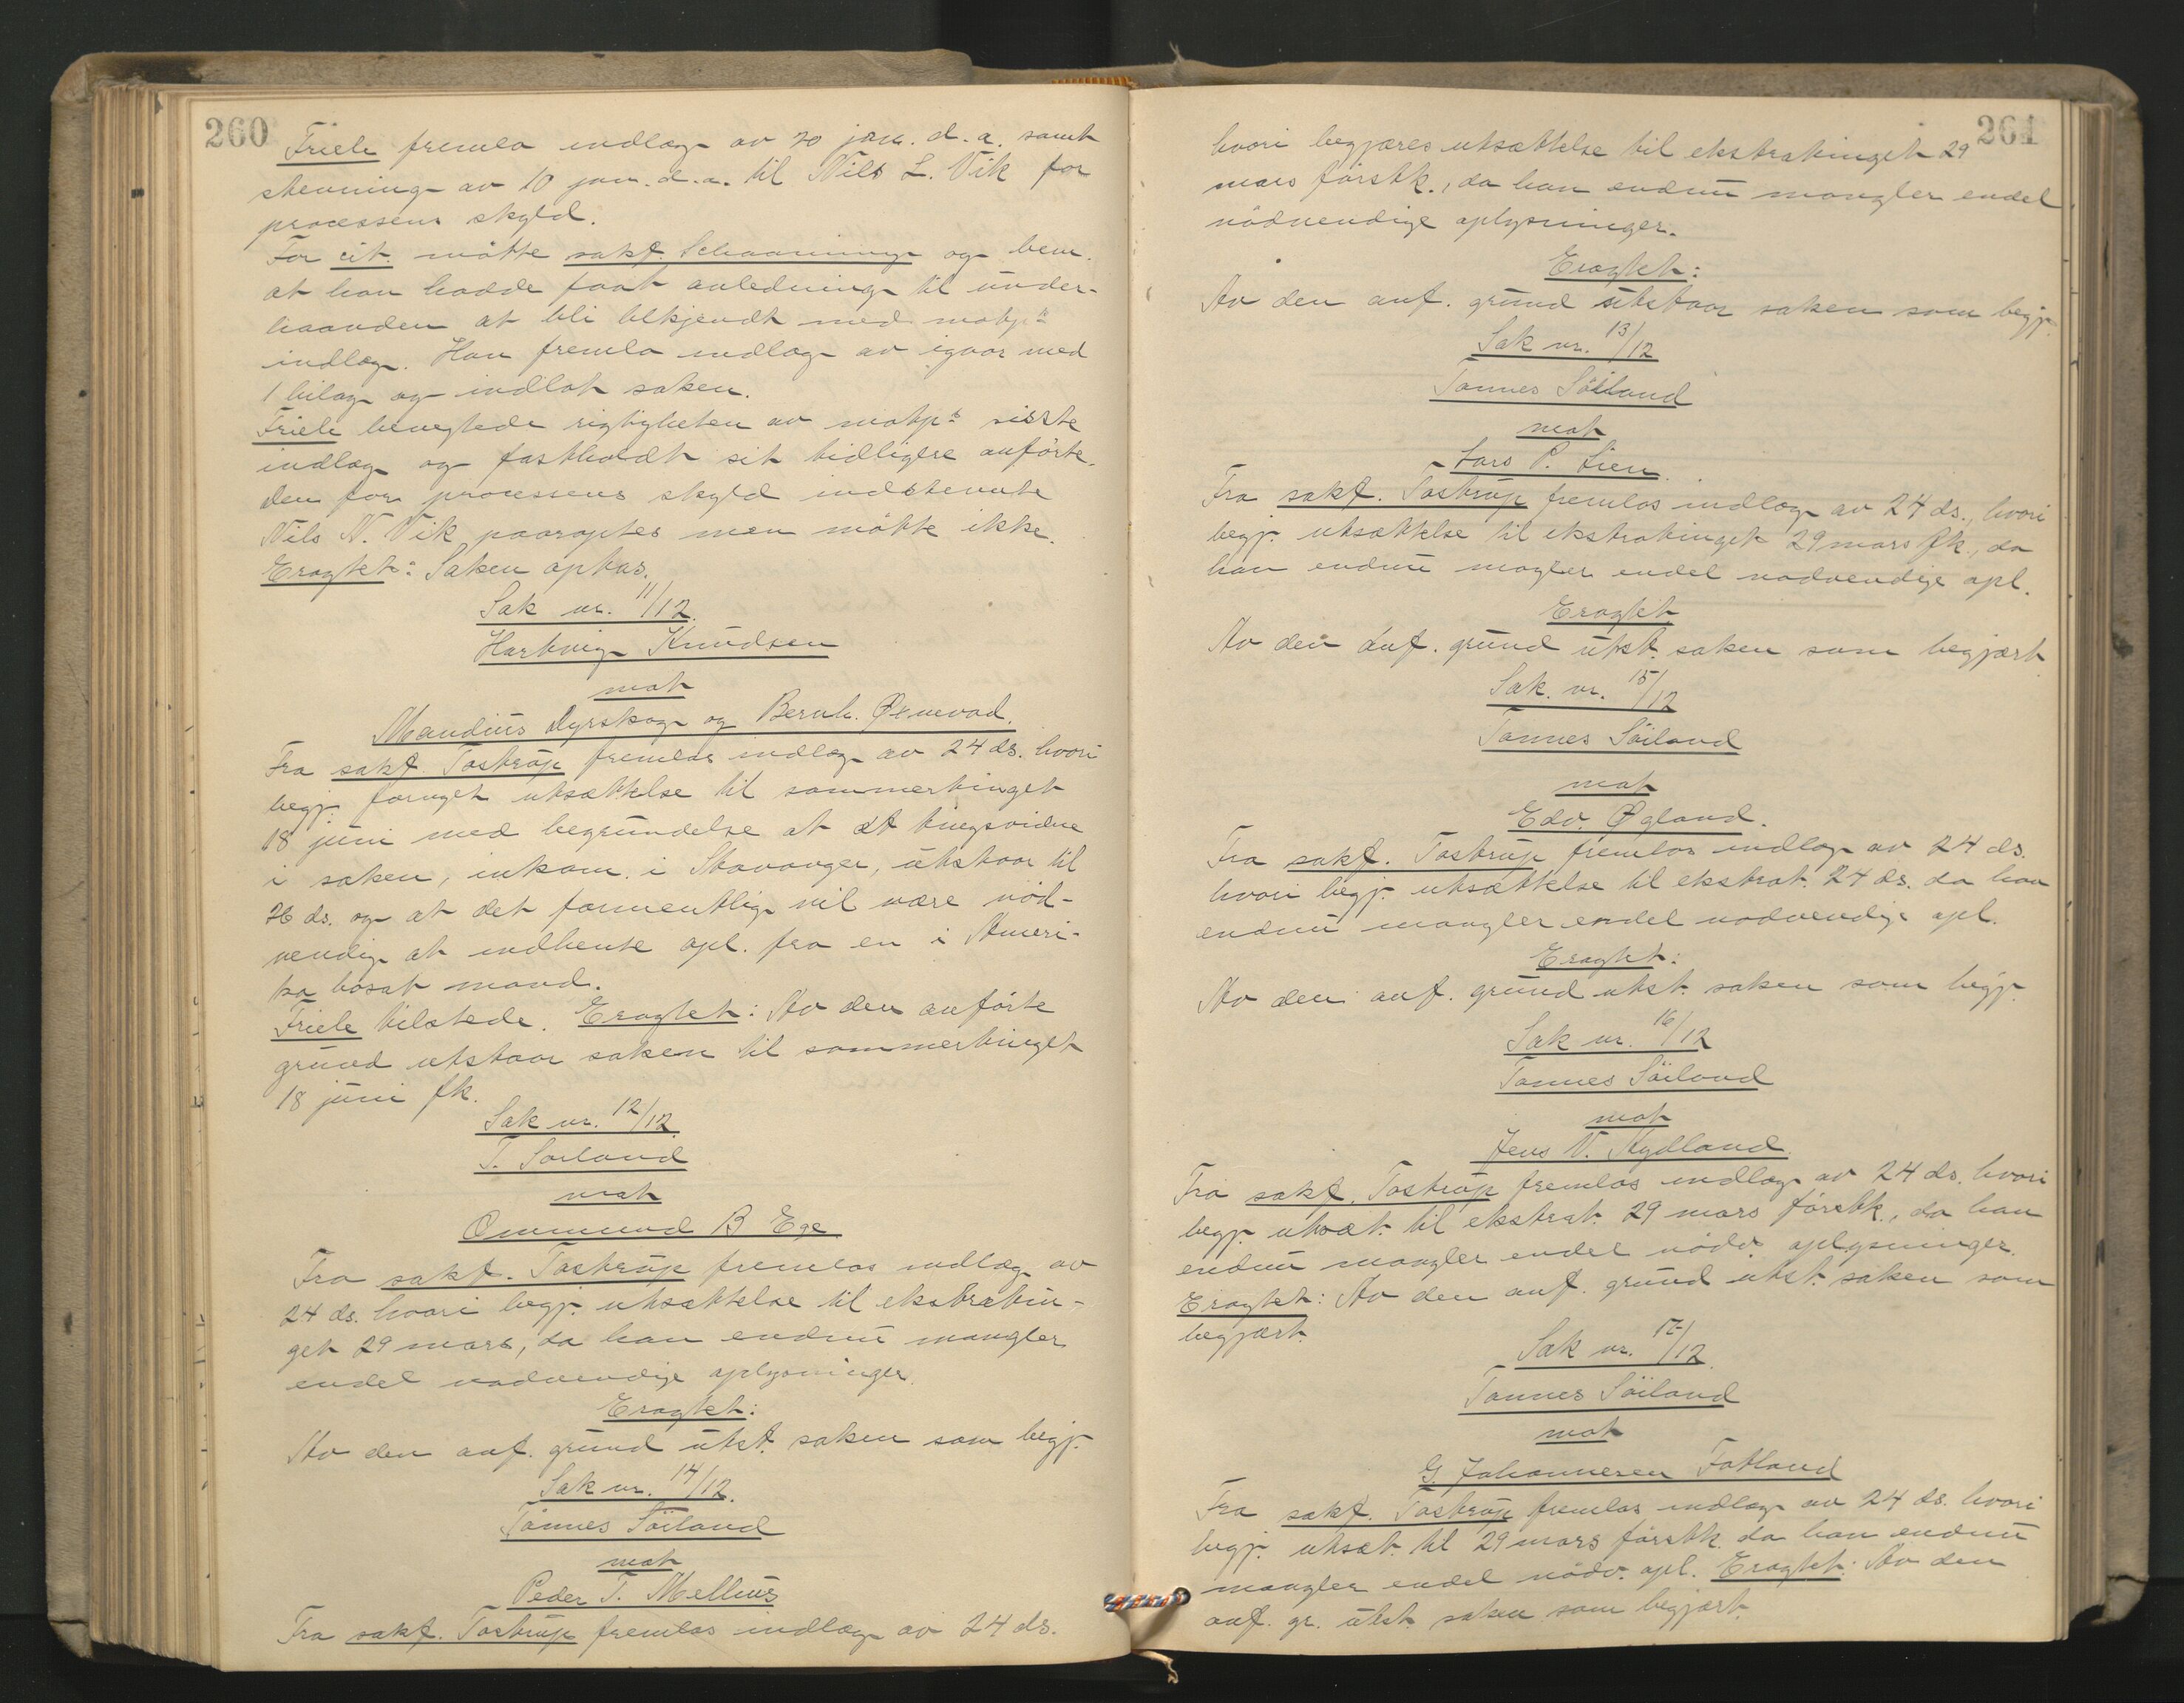 260
Friele fremla indlæg av 20 jan. d.a. samt
stevning av 10 jan. d.a. til Nils L. Vik for
processens skyld.
For cit. møtte sakf. Schaanning og bem.
at han hadde faat anledning til under-
haanden at bli bekjendt med motp.s
indlæg. Han fremla indlæg av igaar med
1 bilag og indlot saken.
Friele benegtede rigtigheten av motp.s siste
indlæg og fastholdt sit tidligere anførte.
Den for processens skyld indstevnte
Nils N. Vik paaroptes men møtte ikke.
Eragtet: Saken optas.
Sak nr. 11/12.
Hartvig Knudsen
mot
Mandius Dyrskog og Bernh. Øxnevad.
Fra sakf. Tostrup fremlas indlæg av 24 ds. hvori
begj. fornyet utsættelse til sommertinget
18 juni med begrundelse at et tingsvidne
i saken, inkam. i Stavanger, utstaar til
26 ds. og at det formentlig vil være nød-
vendig at indhente opl. fra en i Ameri-
ka bosat mand.
Friele tilstede. Eragtet: Av den anførte
grund utstaar saken til sommertinget
18 juni fk.
Sak nr. 12/12.
T. Søiland
mot
Ommund B Ege
Fra sakf. Tostrup fremlas indlæg av
24 ds. hvori begj. utsættelse til ekstratin-
get 29 mars, da han endnu mangler
endel nødvendige oplysninger.
Eragtet:
Av den anf. grund utst. saken som begj.
Sak nr. 14/12.
Tønnes Søiland
mot
Peder T. Mellius
Fra sakf. Tostrup fremlas indlæg av 24 ds.
261
hvori begjæres utsættelse til ekstratinget 29
mars førstk., da han endnu mangler endel
nødvendige oplysninger.
Eragtet:
Av den anf. grund utstaar saken som begj.
Sak nr. 13/12
Tønnes Søiland
mot
Lars P. Lien
Fra sakf. Tostrup fremlas indlæg av 24 ds., hvori
begj. utsættelse til ekstratinget 29 mars fk., da
han endnu magler endel nødvendige opl.
Eragtet
Av den anf. grund utst. saken som begjært
Sak. nr. 15/12
Tønnes Søiland
mot
Edv. Øgland.
Fra sakf. Tostrup fremlas indlæg av 24 ds.
hvori begj. utsættelse til ekstrat. 24 ds. da han
endnu mangler endel nødvendige opl.
Eragtet:
Av den anf. grund utst. saken som begj.
Sak nr. 16/12
Tønnes Søiland
mot
Jens V. Kydland.
Fra sakf. Tostrup fremlas indlæg av 24 ds. hvori
begj. utsæt. til ekstrat. 29 mars førstk., da han
endnu mangler endel nødv. oplysninger.
Eragtet: Av den anf. grund utst. saken som
begjært.
Sak nr. 17/12.
Tønnes Søiland
mot
G. Johannesen Fotland
Fra sakf. Tostrup fremlas indlæg av 24 ds. hvori
begj. utsæt. til 29 mars førstk. da han endnu
mangler endel nødv. opl. Eragtet: Av den
anf. gr. utst. saken som begjært.